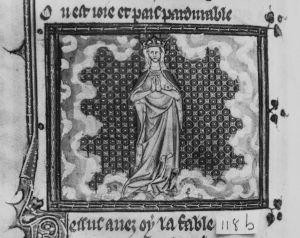 Ou est ioie et pais pardurable
Dessus auez oy la fable
118 b